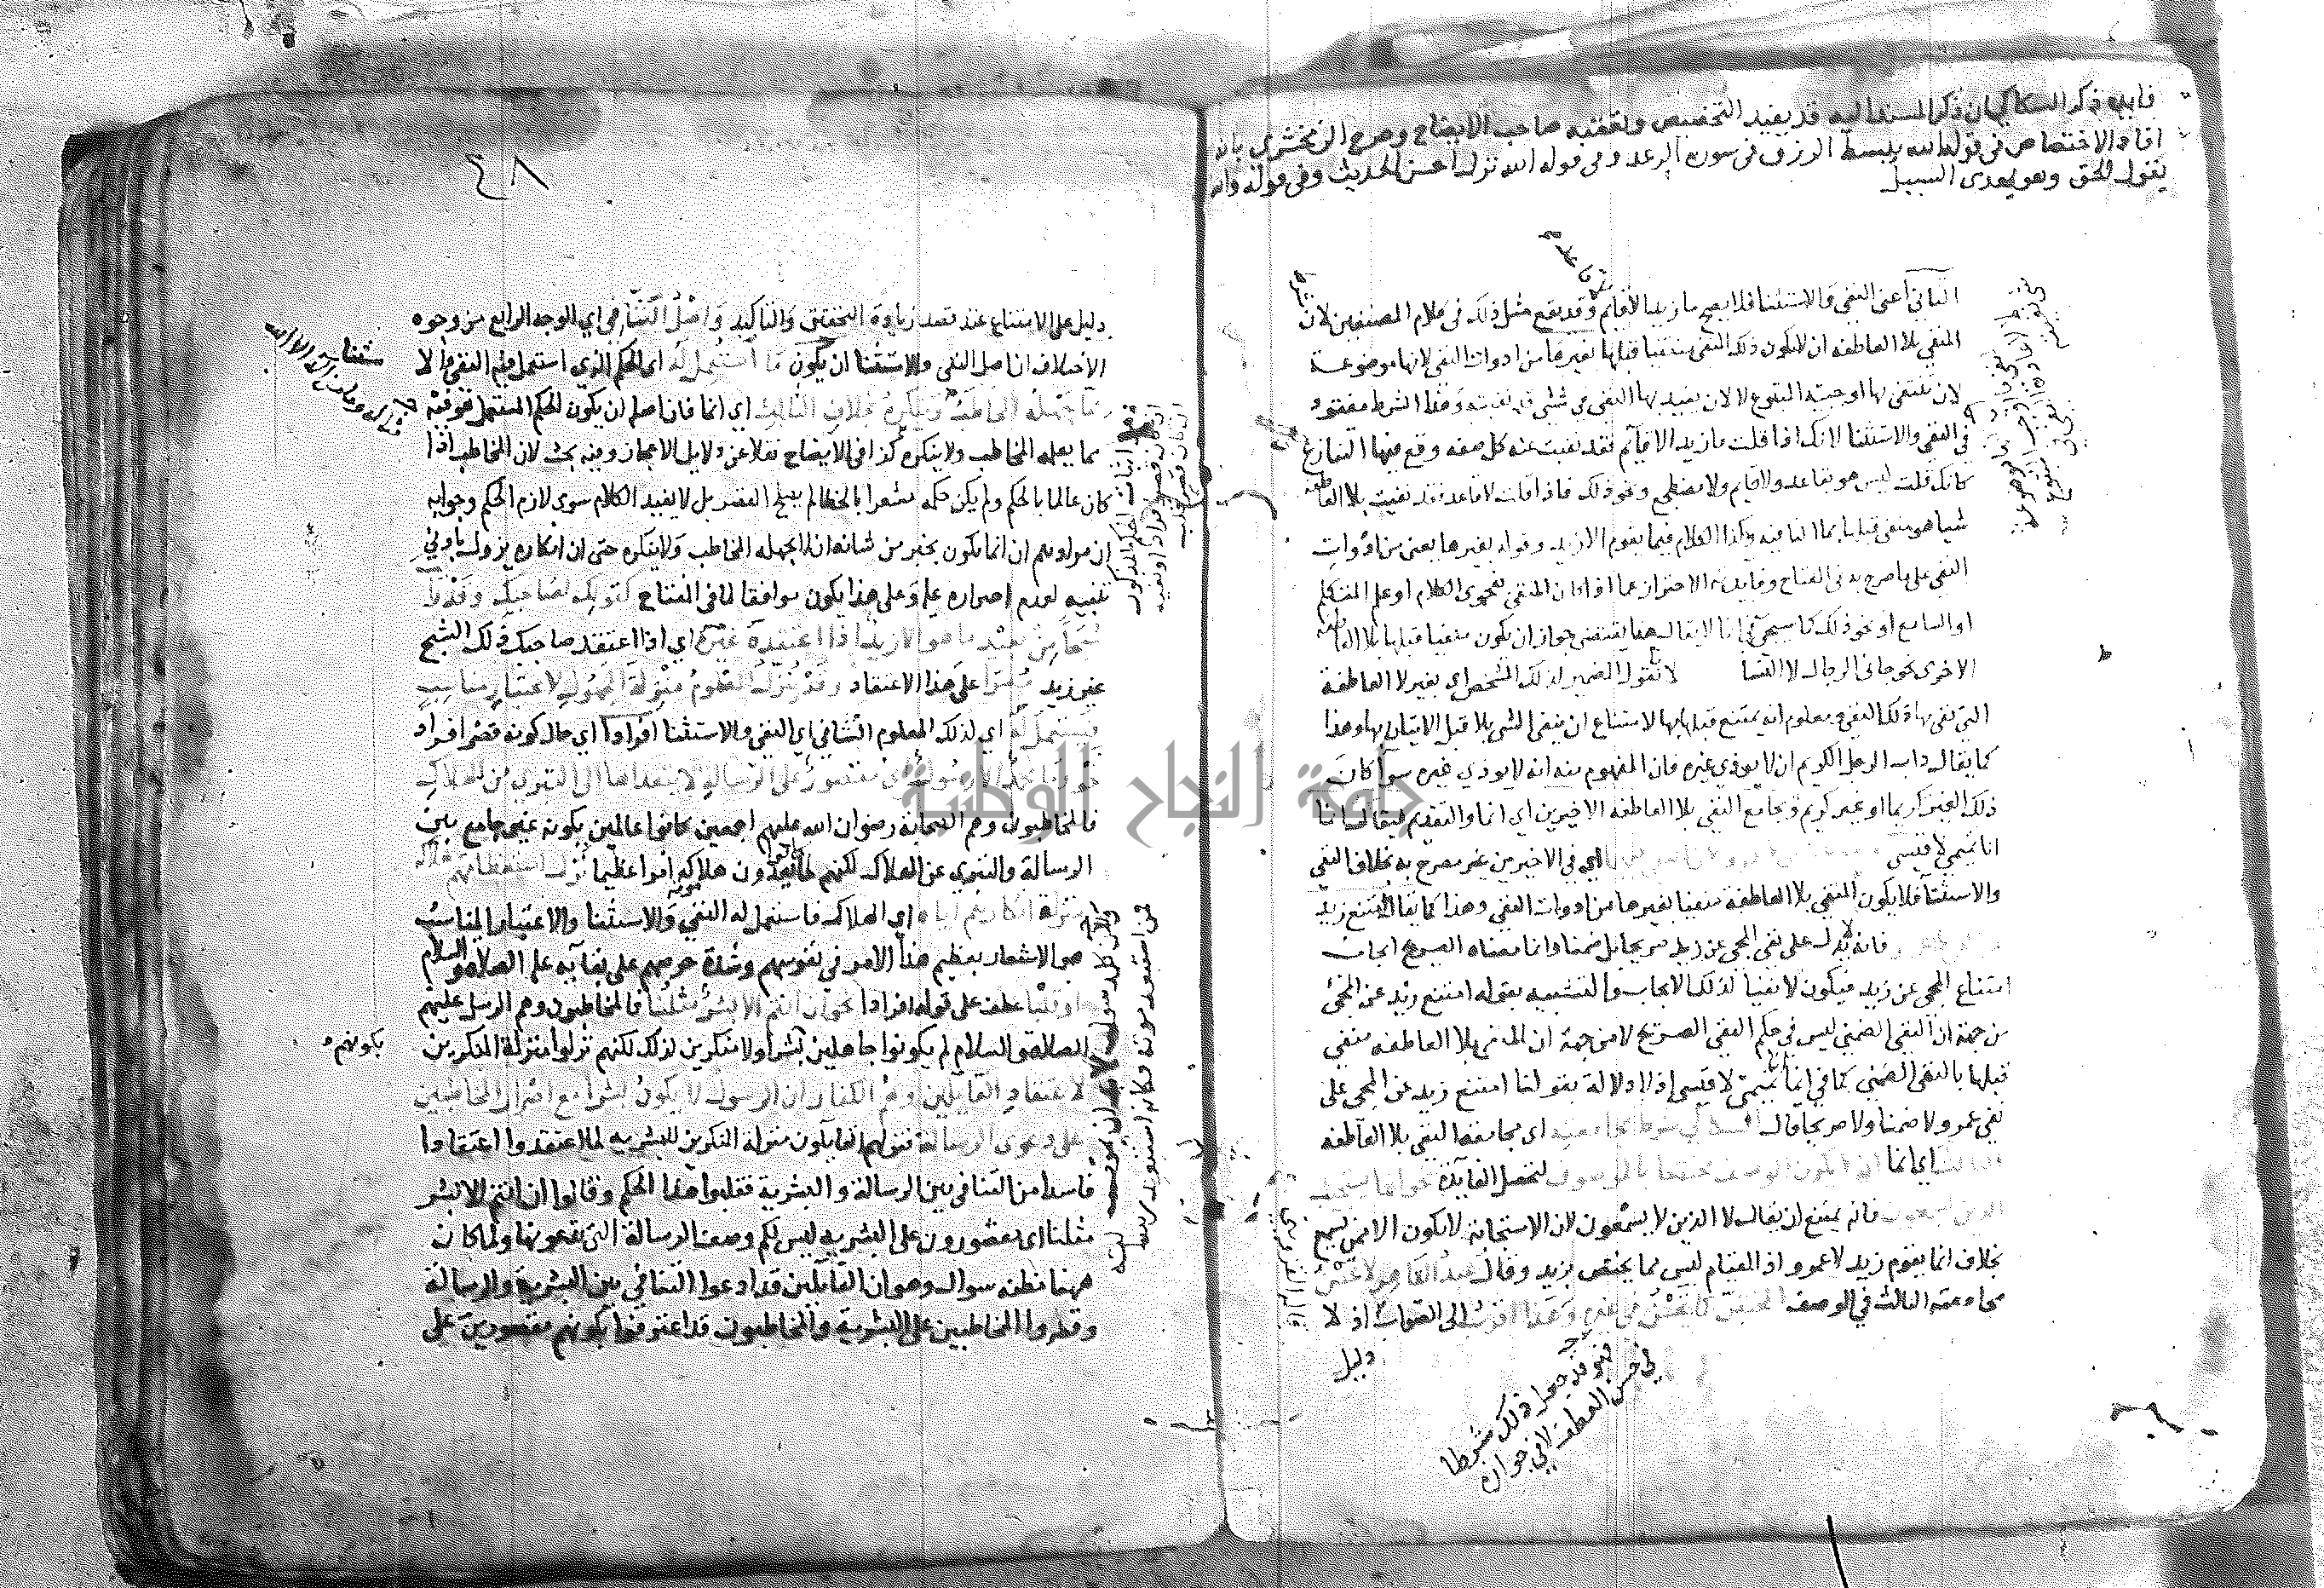 فايده ذكر السكاكي ان ذكر المسند اليه قد يفيد التخصيص وتعقبه صاحب الايضاح وصرح الزمخشري بانه
افاد الاختصاص في قوله الله يبسط الرزق في سورة الرعد وفي قوله الله نزل احسن الحديث وفي قوله والله
يقول الحق وهو يهدي السبيل
الثاني اعني النفي والاستثنا فلا يصح ما زيد الا قايم وقد يقع مثل ذلك في كلام المصنفين لان
المنفي بلا العاطفة ان لا يكون ذلك المنفي منفيا قبلها بغيرها من ادوات النفي لانها موضوعة
لان تنفي بها ما اوجبته للمتبوع لا لان تفيد بها النفي في شي قد نفيته وهذا الشرط مفقود
في النفي والاستثنا لانك اذا قلت ما زيد الا قايم فقد نفيت عنه كل صفة وقع فيها التنازع
كانك قلت ليس هو بقاعد ولا نايم ولا مضطجع ونحو ذلك فاذا قلت لا قاعد فقد نفيت بلا العاطفة
شيا هو منفي قبلها بما النافية وكذا الكلام فيما يقوم الا زيد وقوله بغيرها يعني من ادوات
النفي على ما صرح به في المفتاح وفايدته الاحتراز عما اذا كان المنفي بفحوى الكلام او علم المتكلم
او السامع او نحو ذلك كما سيجي في انما لا يقال هذا يقتضي جواز ان يكون منفيا قبلها بلا العاطفة
الاخرى نحو جاني الرجال لا النسا لانا نقول الضمير لذلك الشخص اي بغير لا العاطفة
التي نفى بها ذلك المنفي ومعلوم انه يمتنع نفيه قبلها بها لامتناع ان ينفى الشي بلا قبل الاتيان بها وهذا
كما يقال داب الرجل الكريم ان لا يوذي غيره فان المفهوم منه انه لا يوذي غيره سوا كان
ذلك الغير كريما او غير كريم ويجامع النفي بلا العاطفة الاخيرين اي انما والتقديم فيقال انما
انا تميمي لا قيسي اي في الاخيرين غير مصرح به بخلاف النفي
والاستثنا فلا يكون المنفي بلا العاطفة منفيا بغيرها من ادوات النفي وهذا كما يقال امتنع زيد
فانه يدل على نفي المجي عن زيد لا صريحا بل ضمنا وانما معناه الصريح ايجاب
امتناع المجي عن زيد فيكون لا نفيا لذلك الايجاب والتشبيه بقوله امتنع زيد عن المجي
من جهة ان النفي الضمني ليس في حكم النفي الصريح لا من جهة ان المنفي بلا العاطفة منفي
قبلها بالنفي الضمني كما في انما انا تميمي لا قيسي اذ لا دلالة بقولنا امتنع زيد عن المجي على
نفي عمرو لا ضمنا ولا صريحا قال السكاكي شرط مجامعته اي مجامعة النفي بلا العاطفة
اي انما ان لا يكون الوصف مختصا بالموصوف لتحصل الفايدة نحو انما يستجيب
الذين يسمعون فانه يمتنع ان يقال لا الذين لا يسمعون لان الاستجابة لا تكون الا ممن يسمع
بخلاف انما يقوم زيد لا عمرو اذ القيام ليس مما يختص بزيد وقال عبد القاهر لا تحسن
مجامعته الثالث في الوصف المختص كما تحسن في غيره وهذا اقرب الى الصواب اذ لا
دليل
في حسن العطف لا في جوازه
٨٤
دليل على الامتناع عند قصد زيادة التحقيق والتاكيد واصل الثاني اي الوجه الرابع من وجوه
الاختلاف ان اصل النفي والاستثنا ان يكون ما استعمل له اي الحكم الذي استعمل فيه النفي والا
مما يجهله المخاطب وينكره بخلاف الثالث اي انما فان اصله ان يكون الحكم المستعمل هو فيه
مما يعلمه المخاطب ولا ينكره كذا في الايضاح نقلا عن دلايل الاعجاز وفيه بحث لان المخاطب اذا
كان عالما بالحكم ولم يكن حكمه مشعرا بالخطا لم يصح القصر بل لا يفيد الكلام سوى لازم الحكم وجوابه
ان مرادهم ان انما يكون بخبر من شانه ان لا يجهله المخاطب ولا ينكره حتى ان انكاره يزول بادنى
تنبيه لعدم اصراره عليه وعلى هذا يكون موافقا لما في المفتاح كقولك لصاحبك وقد رايت
شبحا من بعيد ما هو الا زيد اذا اعتقده غيره اي اذا اعتقد صاحبك ذلك الشبح
غير زيد مصرا على هذا الاعتقاد وقد ينزل المعلوم منزلة المجهول لاعتبار مناسب
فيستعمل له اي لذلك المعلوم الثاني اي النفي والاستثنا افرادا اي حال كونه قصر افراد
نحو وما محمد الا رسول اي مقصور على الرسالة لا يتعداها الى التبري من الهلاك
فالمخاطبون وهم الصحابة رضوان الله عليهم اجمعين كانوا عالمين بكونه غير جامع بين
الرسالة والتبري عن الهلاك لكنهم لما كانوا يعدون هلاكه امرا عظيما نزل استعظامهم هلاكه
منزلة انكارهم اياه اي الهلاك فاستعمل له النفي والاستثنا والاعتبار المناسب
هو الاشعار بعظم هذا الامر في نفوسهم وشدة حرصهم على بقايه عليه الصلاة والسلام
او قلبا عطف على قوله افرادا نحو ان انتم الا بشر مثلنا فالمخاطبون وهم الرسل عليهم
الصلاة والسلام لم يكونوا جاهلين بكونهم بشرا ولا منكرين لذلك لكنهم نزلوا منزلة المنكرين
لاعتقاد القايلين وهم الكفار ان الرسول لا يكون بشرا مع اصرار المخاطبين
على دعوى الرسالة فنزلهم القايلون منزلة المنكرين للبشرية لما اعتقدوا اعتقادا
فاسدا من التنافي بين الرسالة والبشرية فقلبوا هذا الحكم وقالوا ان انتم الا بشر
مثلنا اي مقصورون على البشرية ليس لكم وصف الرسالة التي تدعونها ولما كان
ههنا مظنة سوال وهو ان القايلين قد ادعوا التنافي بين البشرية والرسالة
وقصروا المخاطبين على البشرية والمخاطبون قد اعترفوا بكونهم مقصورين على
جامعة النجاح الوطنية